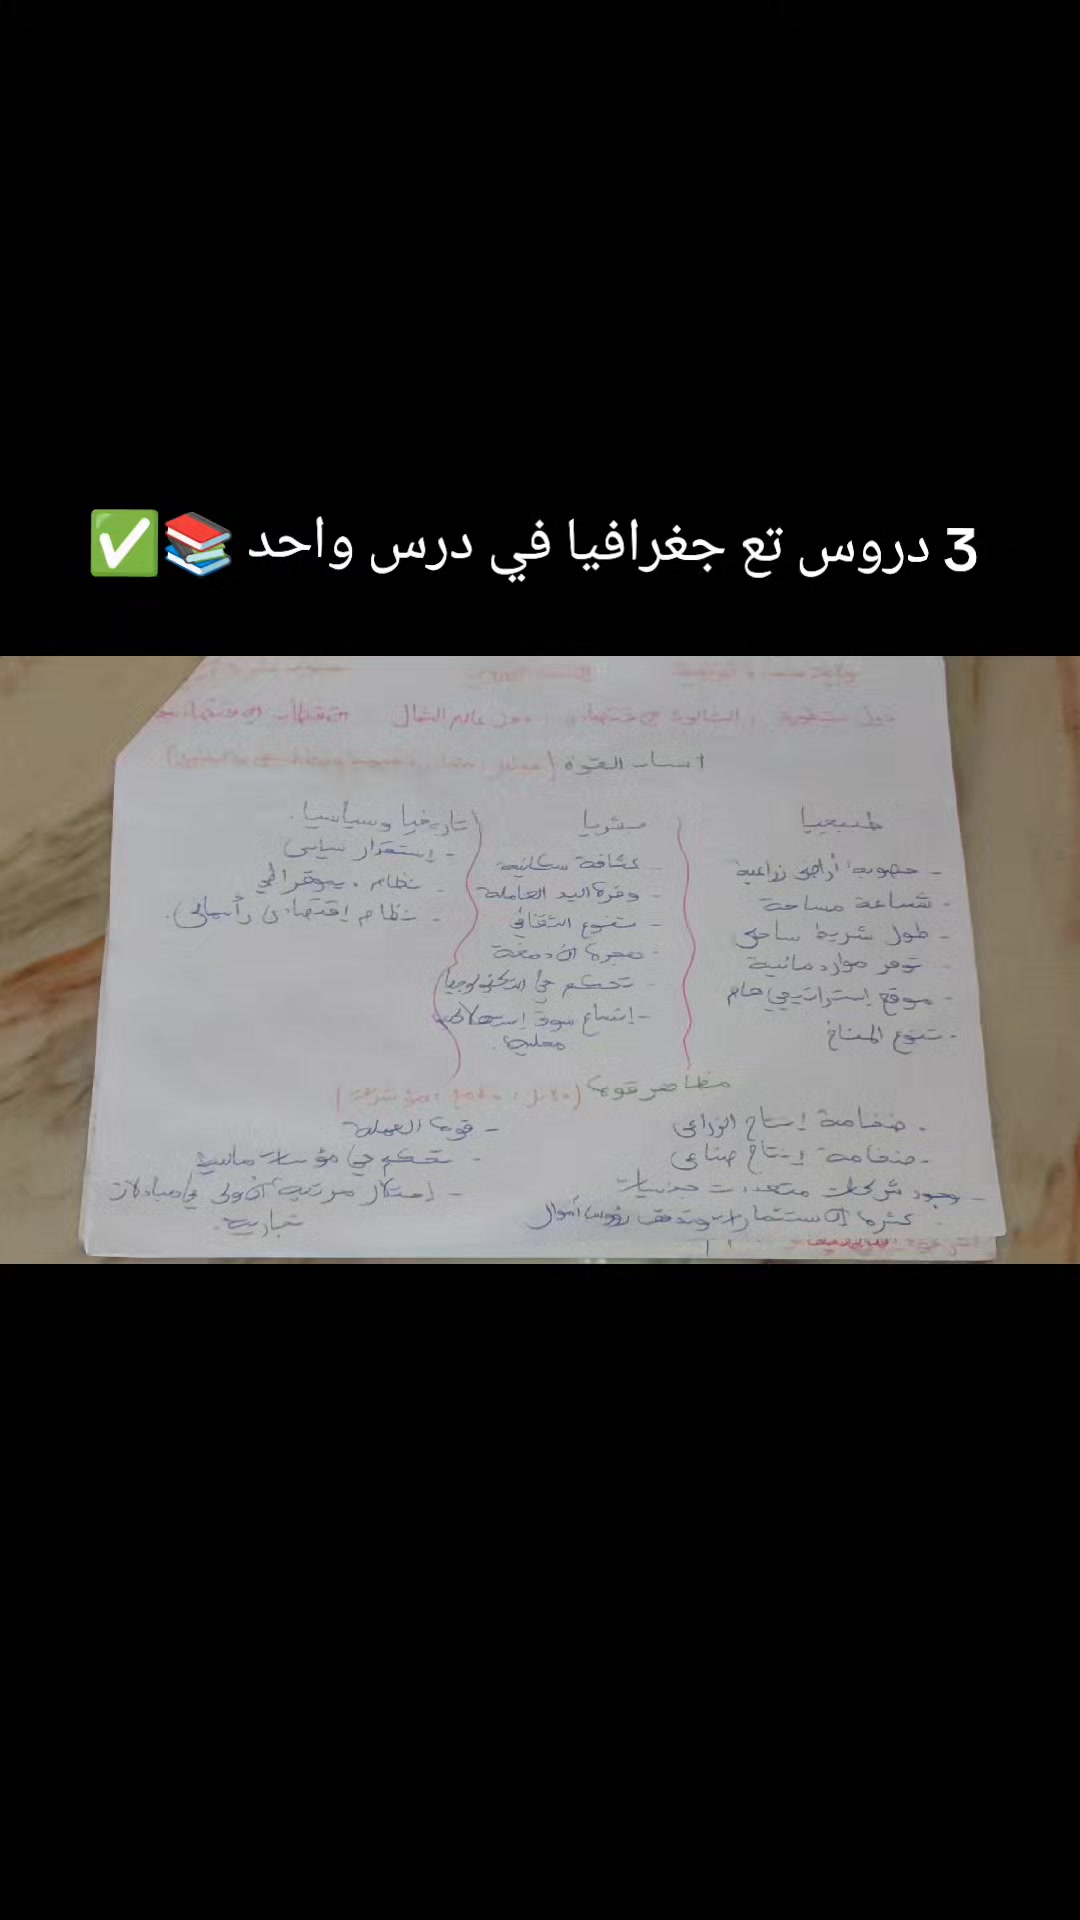 3 دروس تع جغرافيا في درس واحد 📚✅
دول عالم الشمال
اسباب القوة
طبيعيا
- خصوبة أراضي زراعية
- شساعة مساحة
- طول شريط ساحلي
- توفر موارد مائية
- موقع إستراتيجي هام
- تنوع المناخ
بشريا
- كثافة سكانية
- وفرة اليد العاملة
- تنوع الثقافي
- هجرة الأدمغة
- تحكم في التكنولوجيا
- إتساع سوق إستهلاكية
محلية.
تاريخيا وسياسيا.
- إستقرار سياسي
- نظام ديموقراطي
- نظام إقتصادي رأسمالي.
مظاهر قوة
- ضخامة إنتاج الزراعي
- ضخامة إنتاج صناعي
- وجود شركات متعددت جنسيات
- كثرة الاستثمارات وتدفق رؤوس أموال
- قوة العملة
- تحكم في مؤسسات مالية
- إحتلال مرتبة الأولى في مبادلات
تجارية.